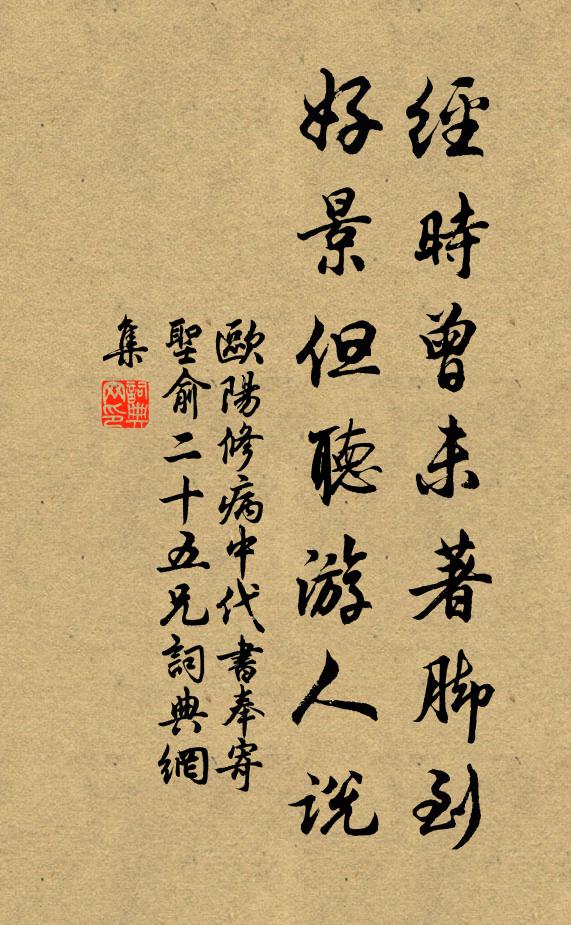 經時曾未著脚到
好景但聽游人説
歐陽修病中代書奉寄
聖俞二十五兄詞典網
集
詞典网印